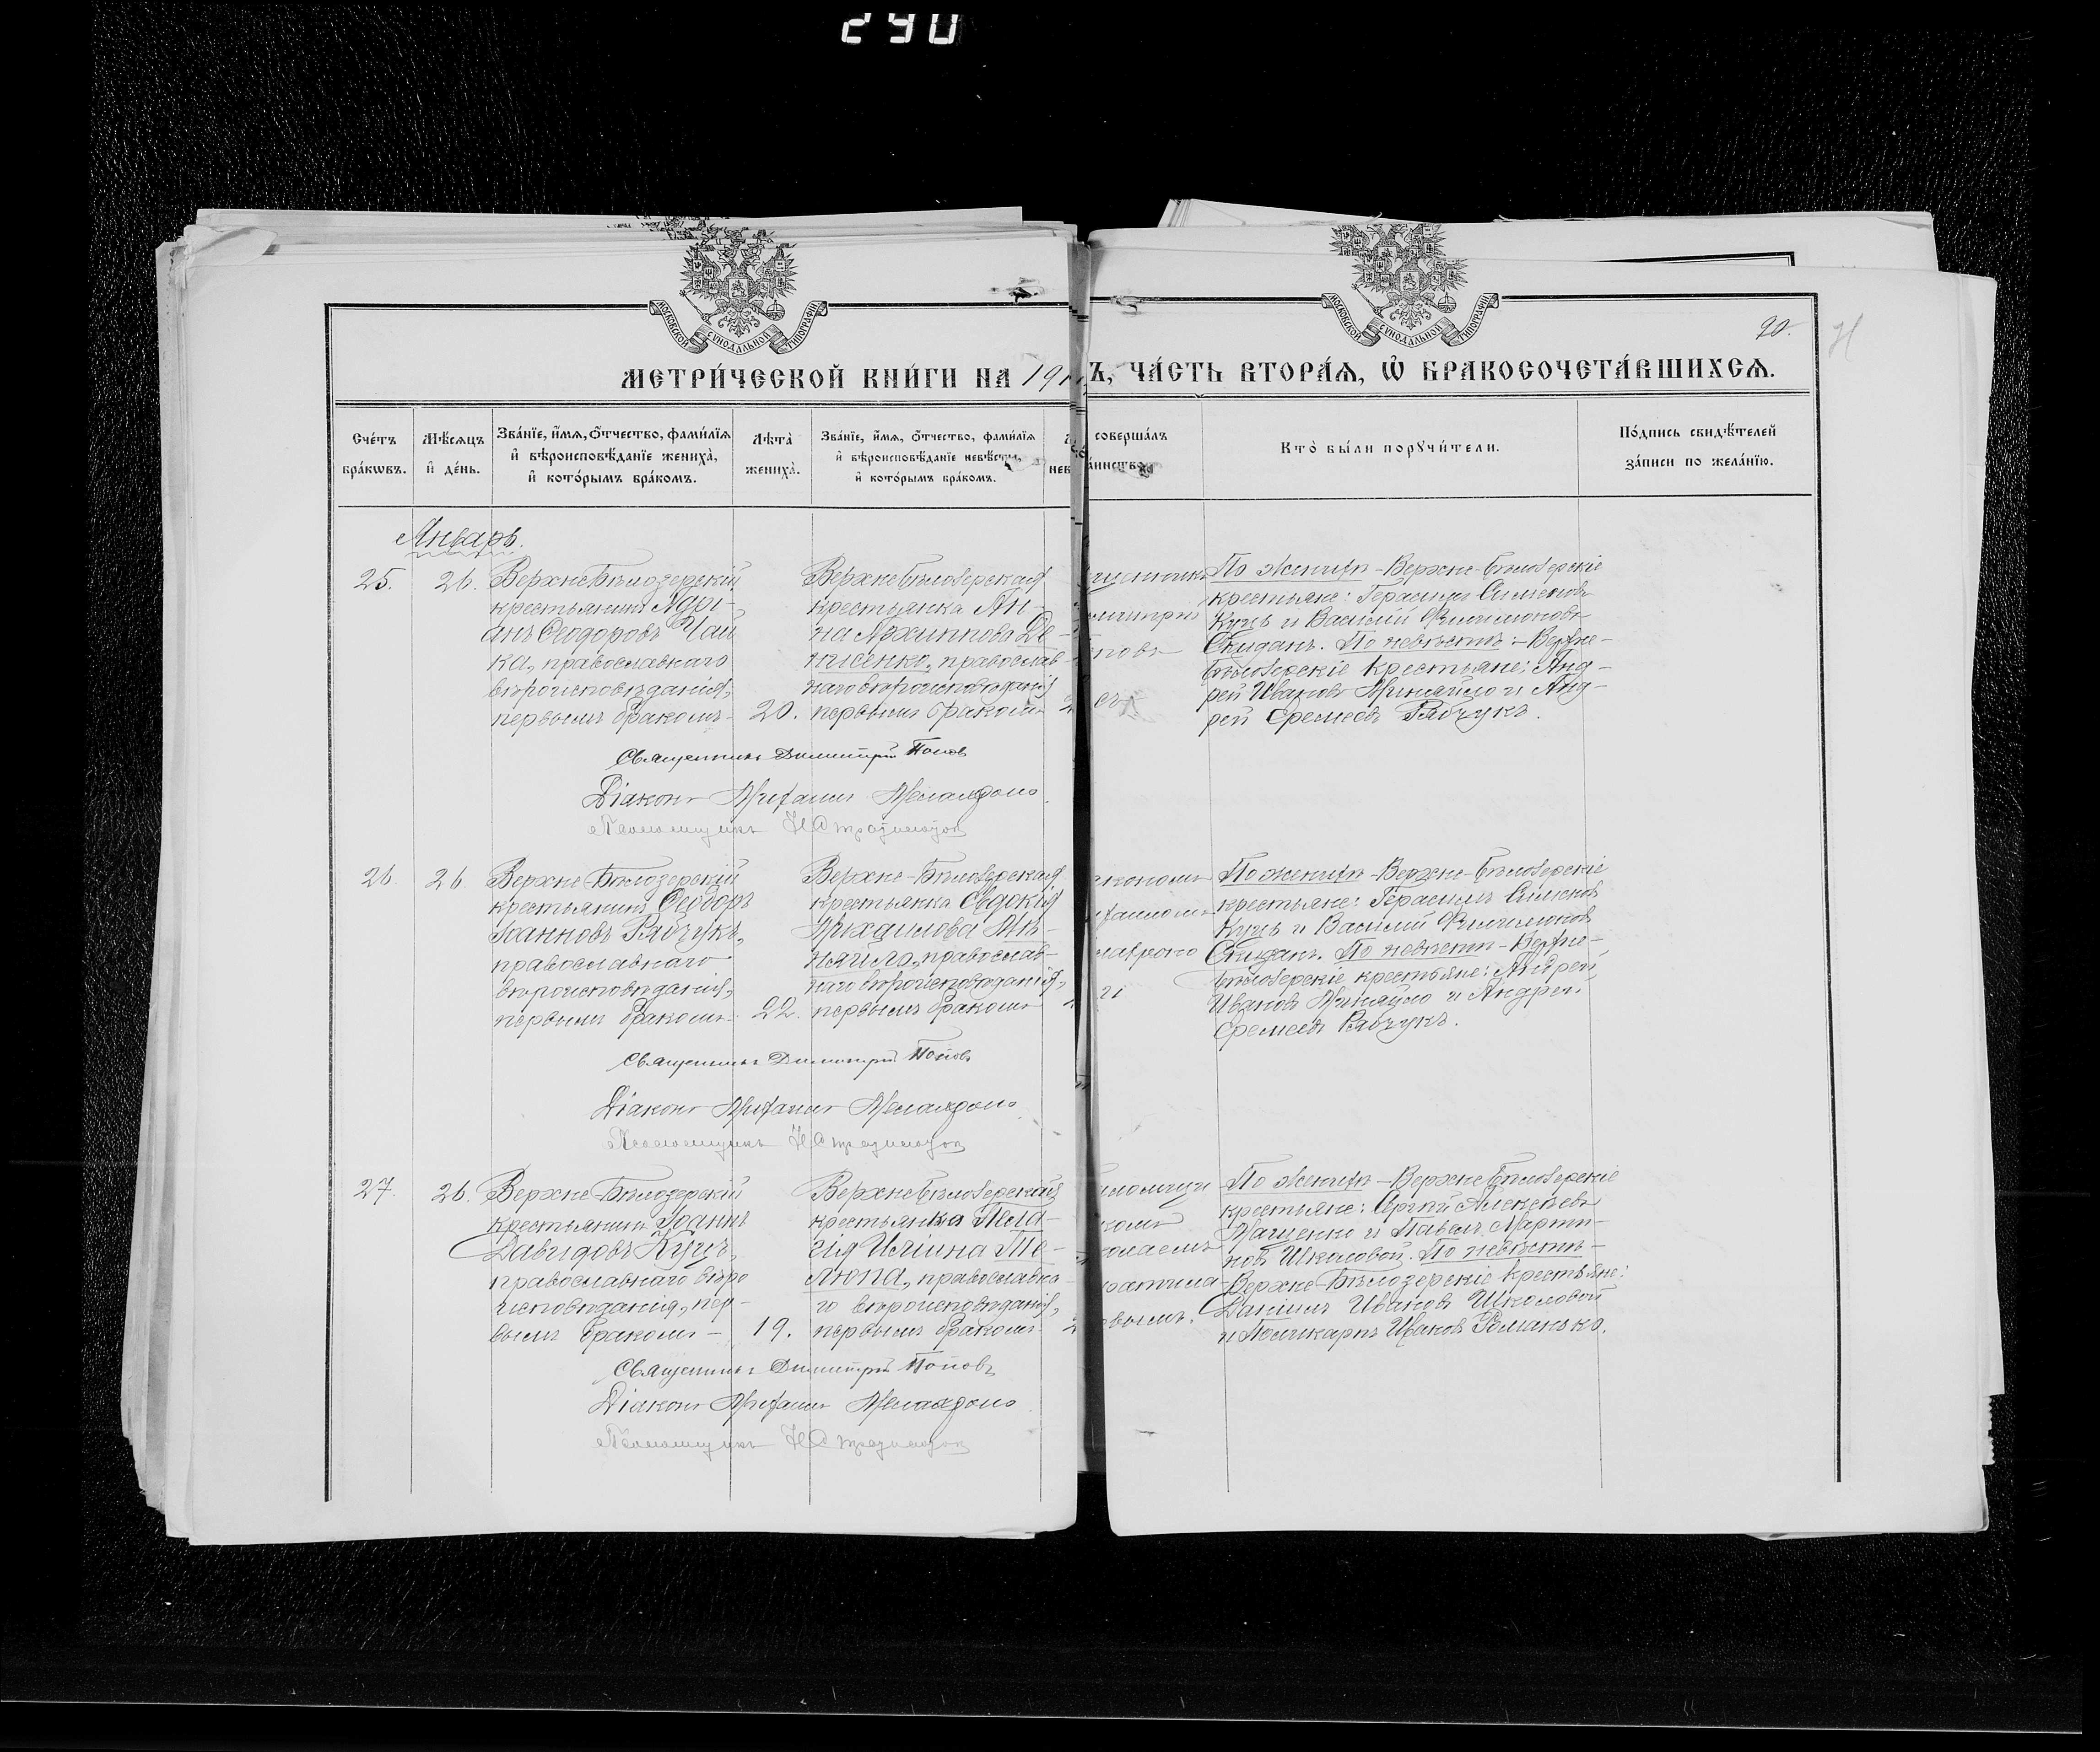 290
МОСКОВСКОЙ СѴНОДАЛЬНОЙ ТИПОГРАФІИ
МОСКОВСКОЙ СѴНОДАЛЬНОЙ ТИПОГРАФІИ
90.
МЕТРИ́ЧЕСКОЙ КНИ́ГИ НА 191
Ъ, ЧА́СТЬ ВТОРА́Ѧ, Ѽ БРАКОСОЧЕТА́ВШИХСѦ.
Сче́тъ бра́кѡвъ.
Мѣ́сѧцъ и҆ де́нь.
Зва́нїе, и҆́мѧ, ѻ҆́тчество, фами́лїѧ и҆ вѣроисповѣ́данїе жениха̀, и҆ кото́рымъ бра́комъ.
Лѣ́та жениха̀.
Зва́нїе, и҆́мѧ, ѻ҆́тчество, фами́лїѧ и҆ вѣроисповѣ́данїе невѣ́сты, и҆ кото́рымъ бра́комъ.
совершалъ
Кто̀ бы́ли порꙋчи́тели.
По́дпись свидѣ́телей за́писи по жела́нїю.
Январь.
25.
26.
Верхне Бѣлозерскій
крестьянинъ Адрі-
анъ Ѳеодоровъ Чай
ка, православнаго
вѣроисповѣданія,
первымъ бракомъ
20.
Верхне Бѣлозерская
крестьянка Ан-
на Архиппова Де-
нисенко, православ-
наго вѣроисповѣданія
первымъ бракомъ
По женихѣ - Верхне-Бѣлозерскіе
крестьяне: Герасимъ Симеоновъ
Куцъ и Василій Филимоновъ
Скиданъ. По невѣстѣ: - Верхне-
бѣлозерскіе крестьяне: Анд-
рей Ивановъ Миняйло и Анд-
рей Еремеевъ Рябчукъ.
Священникъ Димитрій Попов
Діаконъ
Псаломщикъ
26
26
Верхне-Бѣлозерскій
крестьянинъ Ѳеодоръ
Іоанновъ Рябчукъ,
православнаго
вѣроисповѣданія,
первымъ бракомъ
22.
Верхне-Бѣлозерская
крестьянка Евдокія
Михаилова Ми-
няйло, православ-
наго вѣроисповѣданія,
первымъ бракомъ
По женихѣ - Верхне-Бѣлозерскіе
крестьяне: Герасимъ Симеоновъ
Куцъ и Василій Филимоновъ
Скиданъ. По невѣстѣ - Верхне-
бѣлозерскіе крестьяне: Андрей
Ивановъ Миняйло и Андрей
Еремеевъ Рябчукъ.
Священникъ Димитрій Поповъ
Діаконъ
Псаломщикъ
27.
26.
Верхне-Бѣлозерскій
крестьянинъ Іоаннъ
Давидовъ Куцъ,
православнаго вѣро
исповѣданія, пер-
вымъ бракомъ -
19.
Верхне Бѣлозерская
крестьянка Пела-
гія Иліина Те-
люпа, православна-
го вѣроисповѣданія,
первымъ бракомъ
По женихѣ - Верхне Бѣлозерскіе
крестьяне: Сергій Алексѣевъ
и Павелъ Марти-
новъ Школовой. По невѣстѣ -
Верхне-Бѣлозерскіе крестьяне:
Даніилъ Ивановъ Школовой
и Поликарпъ Ивановъ
Священникъ Димитрій Поповъ
Діаконъ
Псаломщикъ